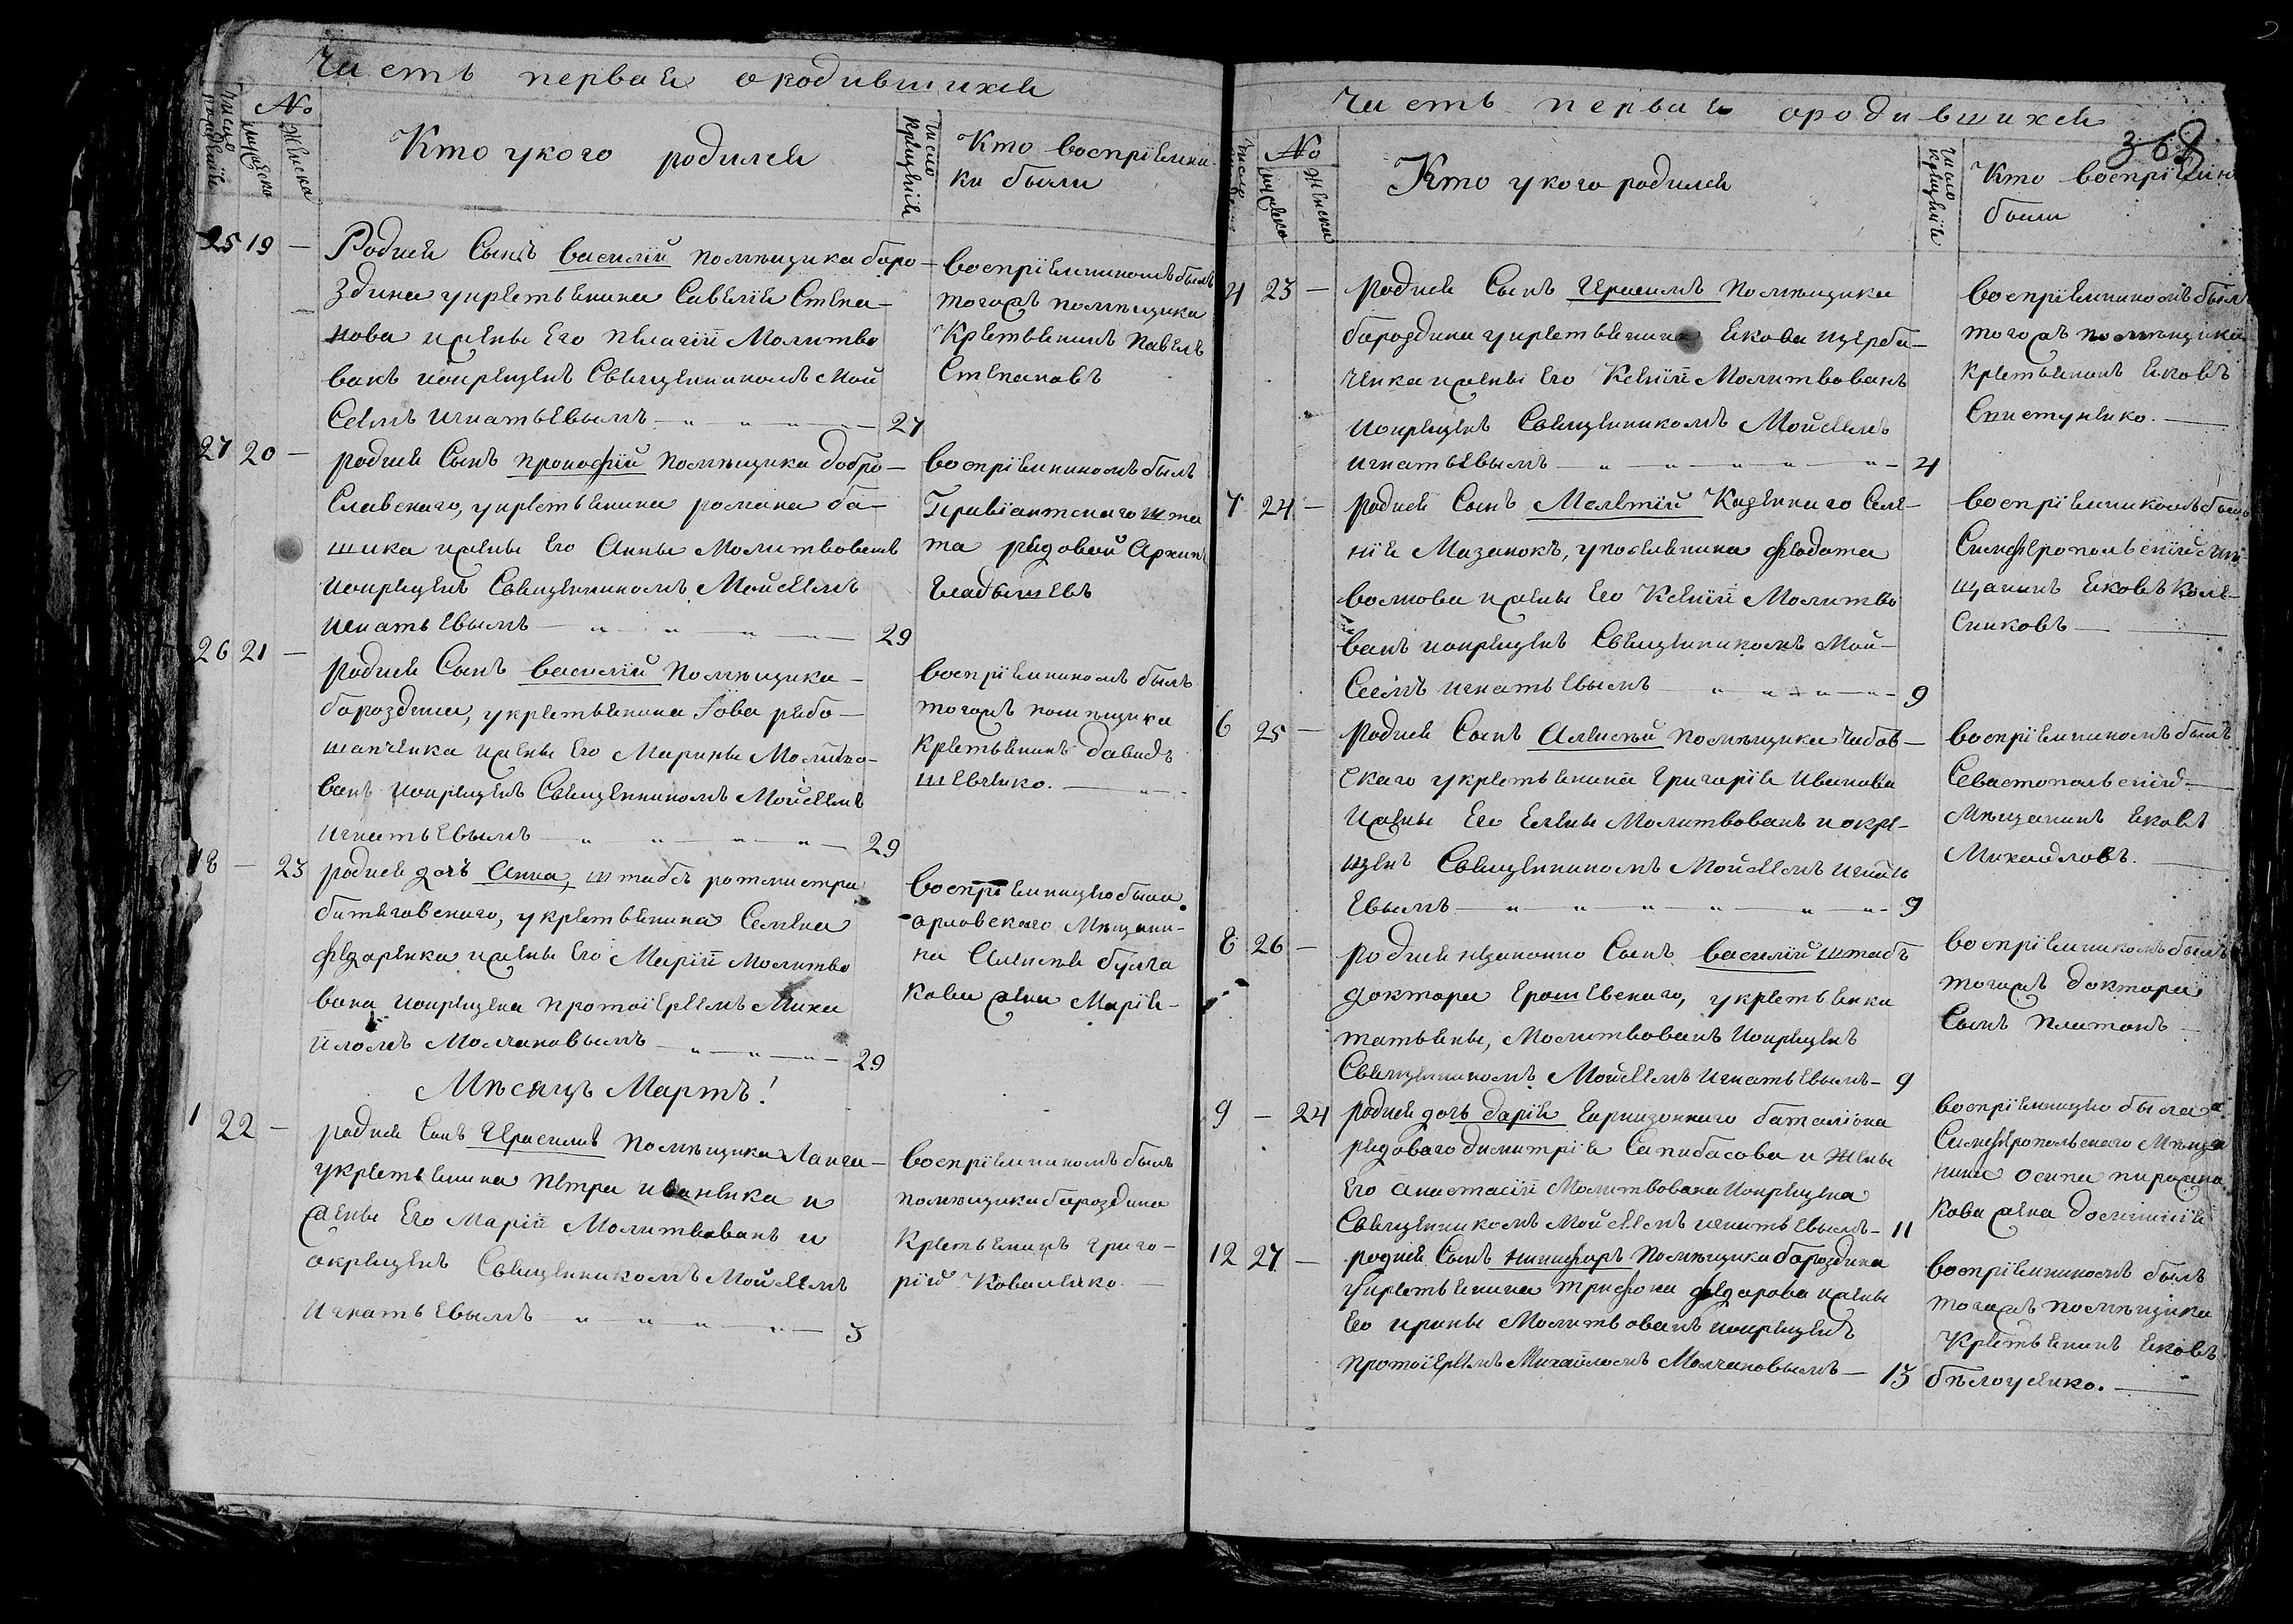 Часть первая о родившихся
Число рождений
№
мужеска
женска
Кто у кого родился
Число крещений
Кто воспріемни-
ки были
25 19 — Родися Сынъ василій помѣщика боро-
здина укрестьянина Савелія Степа-
нова ижены Его пелагіи Молитво
ванъ иокрещенъ Священникомъ Мой
Сеемъ игнатьевымъ — 27
воспріемникомъ былъ
тогожъ помѣщика
Крестьянинъ павелъ
Степановъ
27 20 — родися Сынъ прокофій помѣщика добро-
Славскаго, укрестьянина романа ба-
шика ижены Его Анны Молитвованъ
иокрещенъ Священникомъ Мойсеемъ
игнатьевымъ — 29
воспріемникомъ былъ
Правіантскаго шта
та рядовой Архипъ
Гладышевъ
26 21 — родися Сынъ василій помѣщика
бороздина, укрестьянина Іова рябо-
шапченка ижены Его Марины Молитво-
ванъ иокрещенъ Священникомъ Мойсеемъ
игнатьевымъ — 29
воспріемникомъ былъ
тогожъ помѣщика
крестьянинъ давидъ
шевченко. —
18 — 23 родися дочь Анна, штабсъ ротмистра
битяговскаго, укрестьянина Семена
федоренка ижены Его Маріи Молитво
вана иокрещена протоіереемъ Миха
иломъ Молчановымъ — 29
воспріемницею была
орловскаго Мѣщани-
на Алексея булга
кова жена Марія-
Мѣсяцъ Мартъ!
1 22 — родися Сынъ Герасимъ помѣщика Ланга-
укрестьянина петра иваненка и
жены Его Маріи Молитвованъ и
окрещенъ Священникомъ Мойсеемъ
игнатьевымъ — 3
воспріемникомъ былъ
помѣщика бороздина
Крестьянинъ григо-
рій Коваленко. —
Часть первая о родившихся
368
Число
№
мужеска
женска
Кто у кого родился
Число крещений
Кто воспріемни
были
4 23 — родися Сынъ Герасимъ помѣщика
бороздина укрестьянина якова щерба-
ченка ижены Его Ксеніи Молитвованъ
иокрещенъ Священникомъ Мойсеемъ
игнатьевымъ — 4
воспріемникомъ былъ
тогожъ помѣщика
крестьянинъ яковъ
Свистуненко. —
7 24 — родися Сынъ Мелетій Казеннаго Селе-
нія Мазанокъ, упоселянина федота
волкова ижены Его Ксеніи Молитво
ванъ иокрещенъ Священникомъ Мой-
Сеемъ игнатьевымъ — 9
воспріемникомъ былъ
Симферопольскій Мѣ-
щанинъ яковъ Коле-
Сниковъ —
6 25 — родися Сынъ Алексѣй помѣщика Чабов-
скаго укрестьянина Григорія Иванова
ижены Его Елены Молитвованъ иокре-
щенъ Священникомъ Мойсеемъ игнать
евымъ — 9
воспріемникомъ былъ
Севастопольскій —
Мѣщанинъ яковъ
Михайловъ.
8 26 — родися незаконно Сынъ василій штабъ
доктора Ерошевскаго, укрестьянки
татьяны, Молитвованъ иокрещенъ
Священникомъ Мойсеемъ игнатьевымъ — 9
воспріемникомъ былъ
тогожъ доктора
Сынъ платонъ
9 — 24 родися дочь дарія Гарнизоннаго баталіона
рядоваго димитрія Сапибасова и жены
Его анастасіи Молитвована иокрещена
Священникомъ Мойсеемъ игнатьевымъ — 11
воспріемницею была
Симферопольскаго Мѣща
нина осипа пирожни
кова жена домникія
12 27 — родися Сынъ никифоръ помѣщика бороздина
укрестьянина трифона федорова ижены
Его ирины Молитвованъ иокрещенъ
протоіереемъ Михайломъ Молчановымъ — 13
воспріемникомъ былъ
тогожъ помѣщика
Крестьянинъ яковъ
бѣлоусенко. —